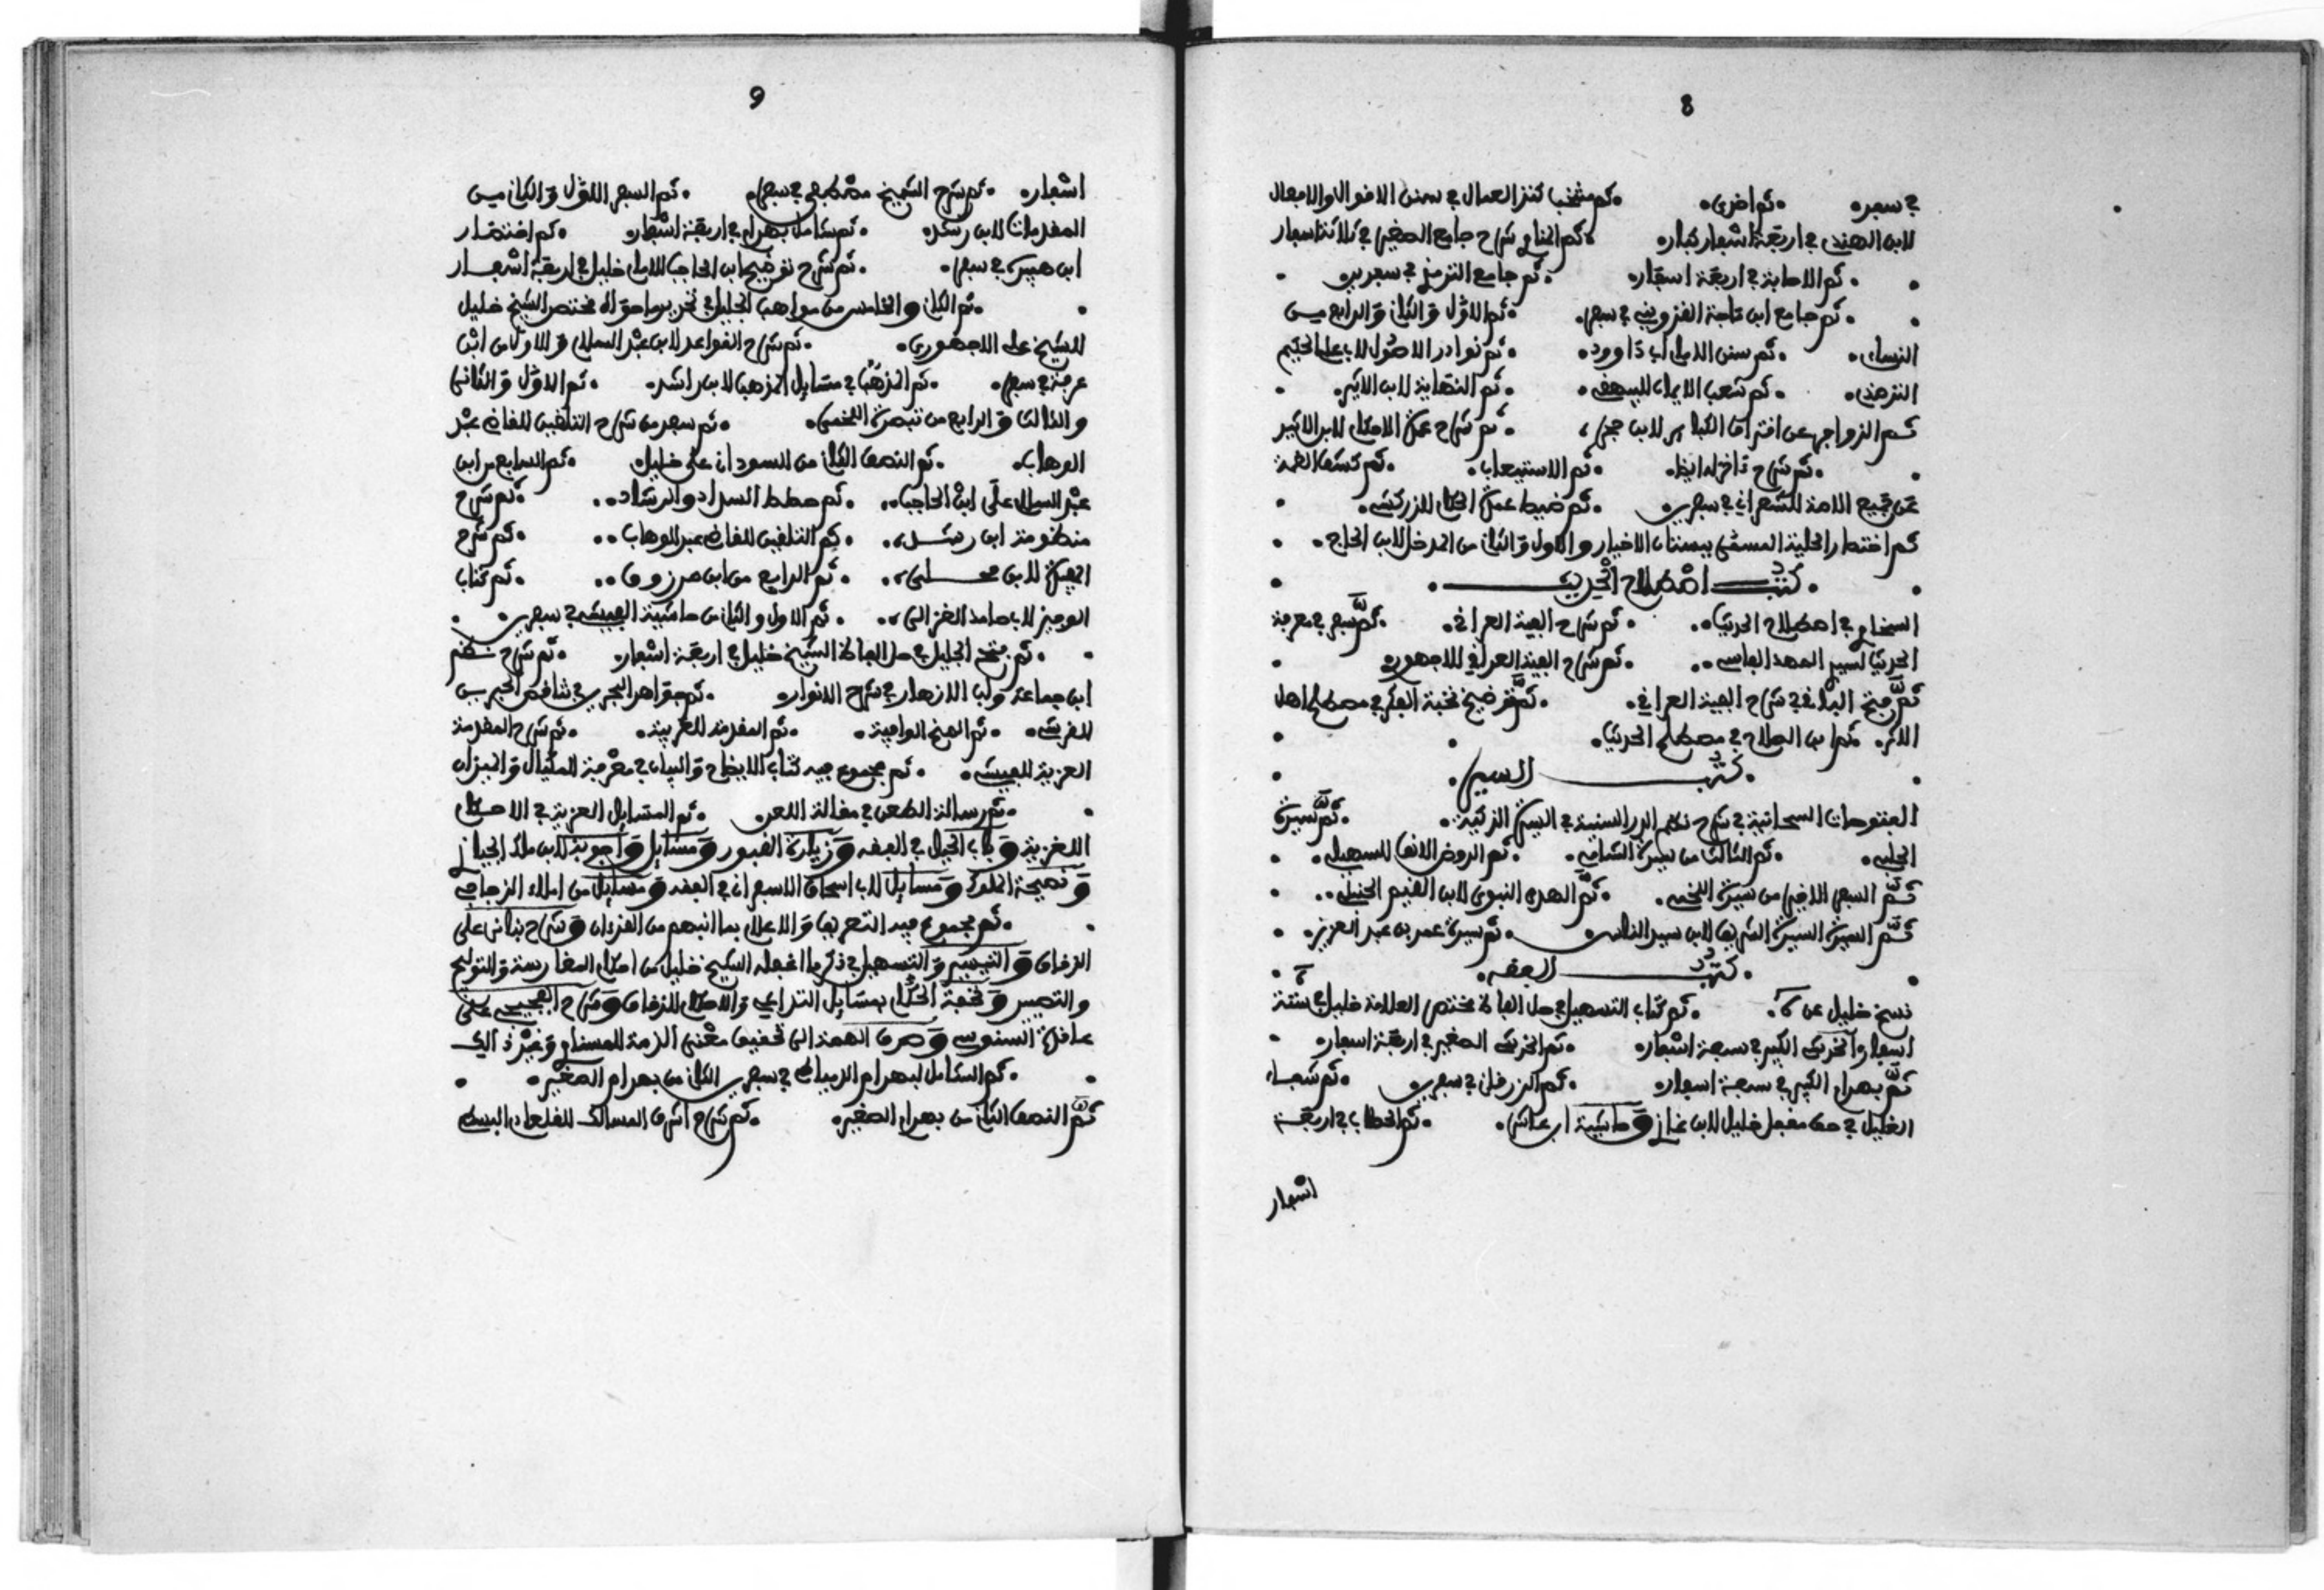 8
في سفر . ثم اخرى . ثم منتخب كنز العمال في سنن الافوال والافعال
لابن الهندي في اربعة اسفار كبار . ثم المناوي شرح جامع الصغير في ثلاثة اسفار
. ثم الاصابة في اربعة اسفار . ثم جامع الترمذي في سفرين .
. ثم جامع ابن ماجة الفزويني في سفر . ثم الاول والثاني والرابع من
النساءي . ثم سنن الامام ابي داوود . ثم نوادر الاصول لابي علي الحكيم
الترمذي . ثم شعب الايمان للبيهفي . ثم النهاية لابن الاثير .
ثم الزواجر عن افتراف الكباير لابن حجر ، . ثم شرح عمدة الاحكام لابن الاثير
. ثم شرح ءاخر له ايضا . ثم الاستيعاب . ثم كشف الغمة
عن جميع الامة للشعراني في سفرين . ثم ضبط عمدة الاحكام للزركشي .
ثم اختصار الحلية المسمى ببستان الاخيار والاول والثاني من المدخل لابن الحاج .
. كتب اصطلاح الحديث .
السخاوي في اصطلاح الحديث . ثم شرح الفية العرافي . ثم سفر في معرفة
الحديث لسيدي المهدي الفاسي . ثم شرح الفية العرافي للاجهوري
ثم فتح البافي شرح الفية العرافي . ثم توضيح نخبة الفكر في مصطلح اهل
الاثر . ثم ابن الصلاح في مصطلح الحديث .
. كتب السير .
الفتوحات السبحانية في شرح نظم الدرر السنية في السيرة الزكية . ثم سيرة
الحلبي . ثم الثالث من سيرة الشامي . ثم الروض الانف للسهيلي .
ثم السفر الاخير من سيرة اللخمي . ثم الهدي النبوي لابن الفيم الحنبلي .
ثم السيرة السيرة الشريفة لابن سيد الناس . ثم سيرة عمر بن عبد العزيز .
. كتب الففه .
نسخ خليل عن . ثم كتاب التسهيل في حل الفاظ مختصر العلامة خليل في ستة
اسفار والخرشي الكبير في سبعة اسفار . ثم الخرشي الصغير في اربعة اسفار .
ثم بهرام الكبير في سبعة اسفار . ثم الزرفاني في سفرين . ثم شفاء
الغليل في حل مففل خليل لابن غازي وحاشية ابن عاشر . ثم الحطاب في اربعة
اسفار
9
اسفار . ثم شرح الشيخ مصطفى في سفر . ثم السفر الاول والثاني من
المفدمات لابن رشد . ثم شامل بهرام في اربعة اسفار . ثم اختصار
ابن هبيرة في سفر . ثم شرح توضيح ابن الحاجب للامام خليل في اربعة اسفار
. ثم الثاني والخامس من مواهب الجليل في تحرير ما حواه مختصر الشيخ خليل
للشيخ علي الاجهوري . ثم شرح الفواعد لابن عبد السلام والاول من ابن
عرفة في سفر . ثم المذهب في مسايل المذهب لابن راشد . ثم الاول والثاني
والثالث والرابع من تبصرة اللخمي . ثم سفر من شرح التلفين للفاضي عبد
الوهاب . ثم النصف الثاني من السوداني على خليل . ثم السابع من ابن
عبد السلام على ابن الحاجب . ثم خطط السداد والرشاد . ثم شرح
منظومة ابن رشد . ثم التلفين للفاضي عبد الوهاب . ثم شرح
ثم الرابع من ابن مرزوف . ثم كتاب
الوجيز لابي حامد الغزالي . ثم الاول والثاني من حاشية الفيشي في سفرين .
. ثم فتح الجليل في حل الفاظ الشيخ خليل في اربعة اسفار . ثم شرح نظم
ابن جماعة ولب الازهار في شرح الانوار . ثم جواهر البحرين في تنافض الحبرين
للفرشي . ثم المنح الوافية . ثم المفدمة للعزية . ثم شرح المفدمة
العزية للفيشي . ثم مجموع فيه كتاب الايضاح والبيان في معرفة المكيال والميزان
. ثم رسالة الطعن في مفالة اللعن . ثم المسايل العزية في الاحكام
اللغزية وباب الحيل في الففه وزيارة الفبور ومسايل واجوبة لابن ملك الجيان
ونصيحة الملوك ومسايل لابي اسحاف الاسفراني في الففه ومسايل من املاء الزجاجي
. ثم مجموع فيه التعريف والاعلام بما انبهم من الفرءان وشرح بناني على
الزفاف والتيسير والتسهيل في ذكر ما اغفله الشيخ خليل من احكام المغارسة والتوليج
والتصيير وتحفة الحكام بمسايل التداعي والاحكام للزفاف وشرح الفجيجي على
حافظة السنوسي وصرف الهمة الى تحفيف معنى الذمة للمسناوي وغير ذالك
. ثم الشامل لبهرام الدمياطي في سفرين الثاني من بهرام الصغير .
ثم النصف الثاني من بهرام الصغير . ثم شرح اشرف المسالك للفلصادي البسطي